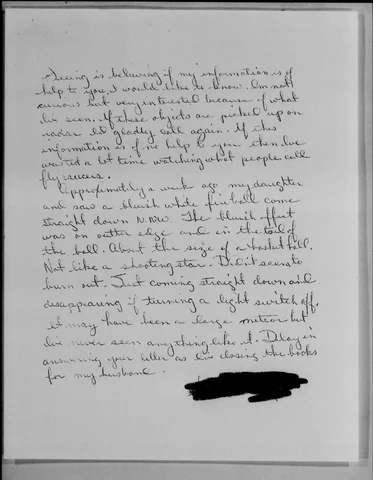 Seeing is believing if my information is of
help to you, I would like to know. Im not
curious but very interested because of what
Ive seen. If these objects are picked up on
radar Ill gladly call again. If this
information is of no help to you then Ive
wasted a lot time watching what people call
fly saucers.
Approximatly a week ago my daughter
and saw a bluish white fireball come
straight down N NW. The bluish effect
was on outter edge and in the tail of
the ball. About the size of a basket ball.
Not like a shooting star. Didn't seem to
burn out. Just coming straight down and
disappearing if turning a light switch off.
It may have been a large meteor but
Ive never seen anything like it. Delay in
answering your letter as Ive closing the books
for my husband.